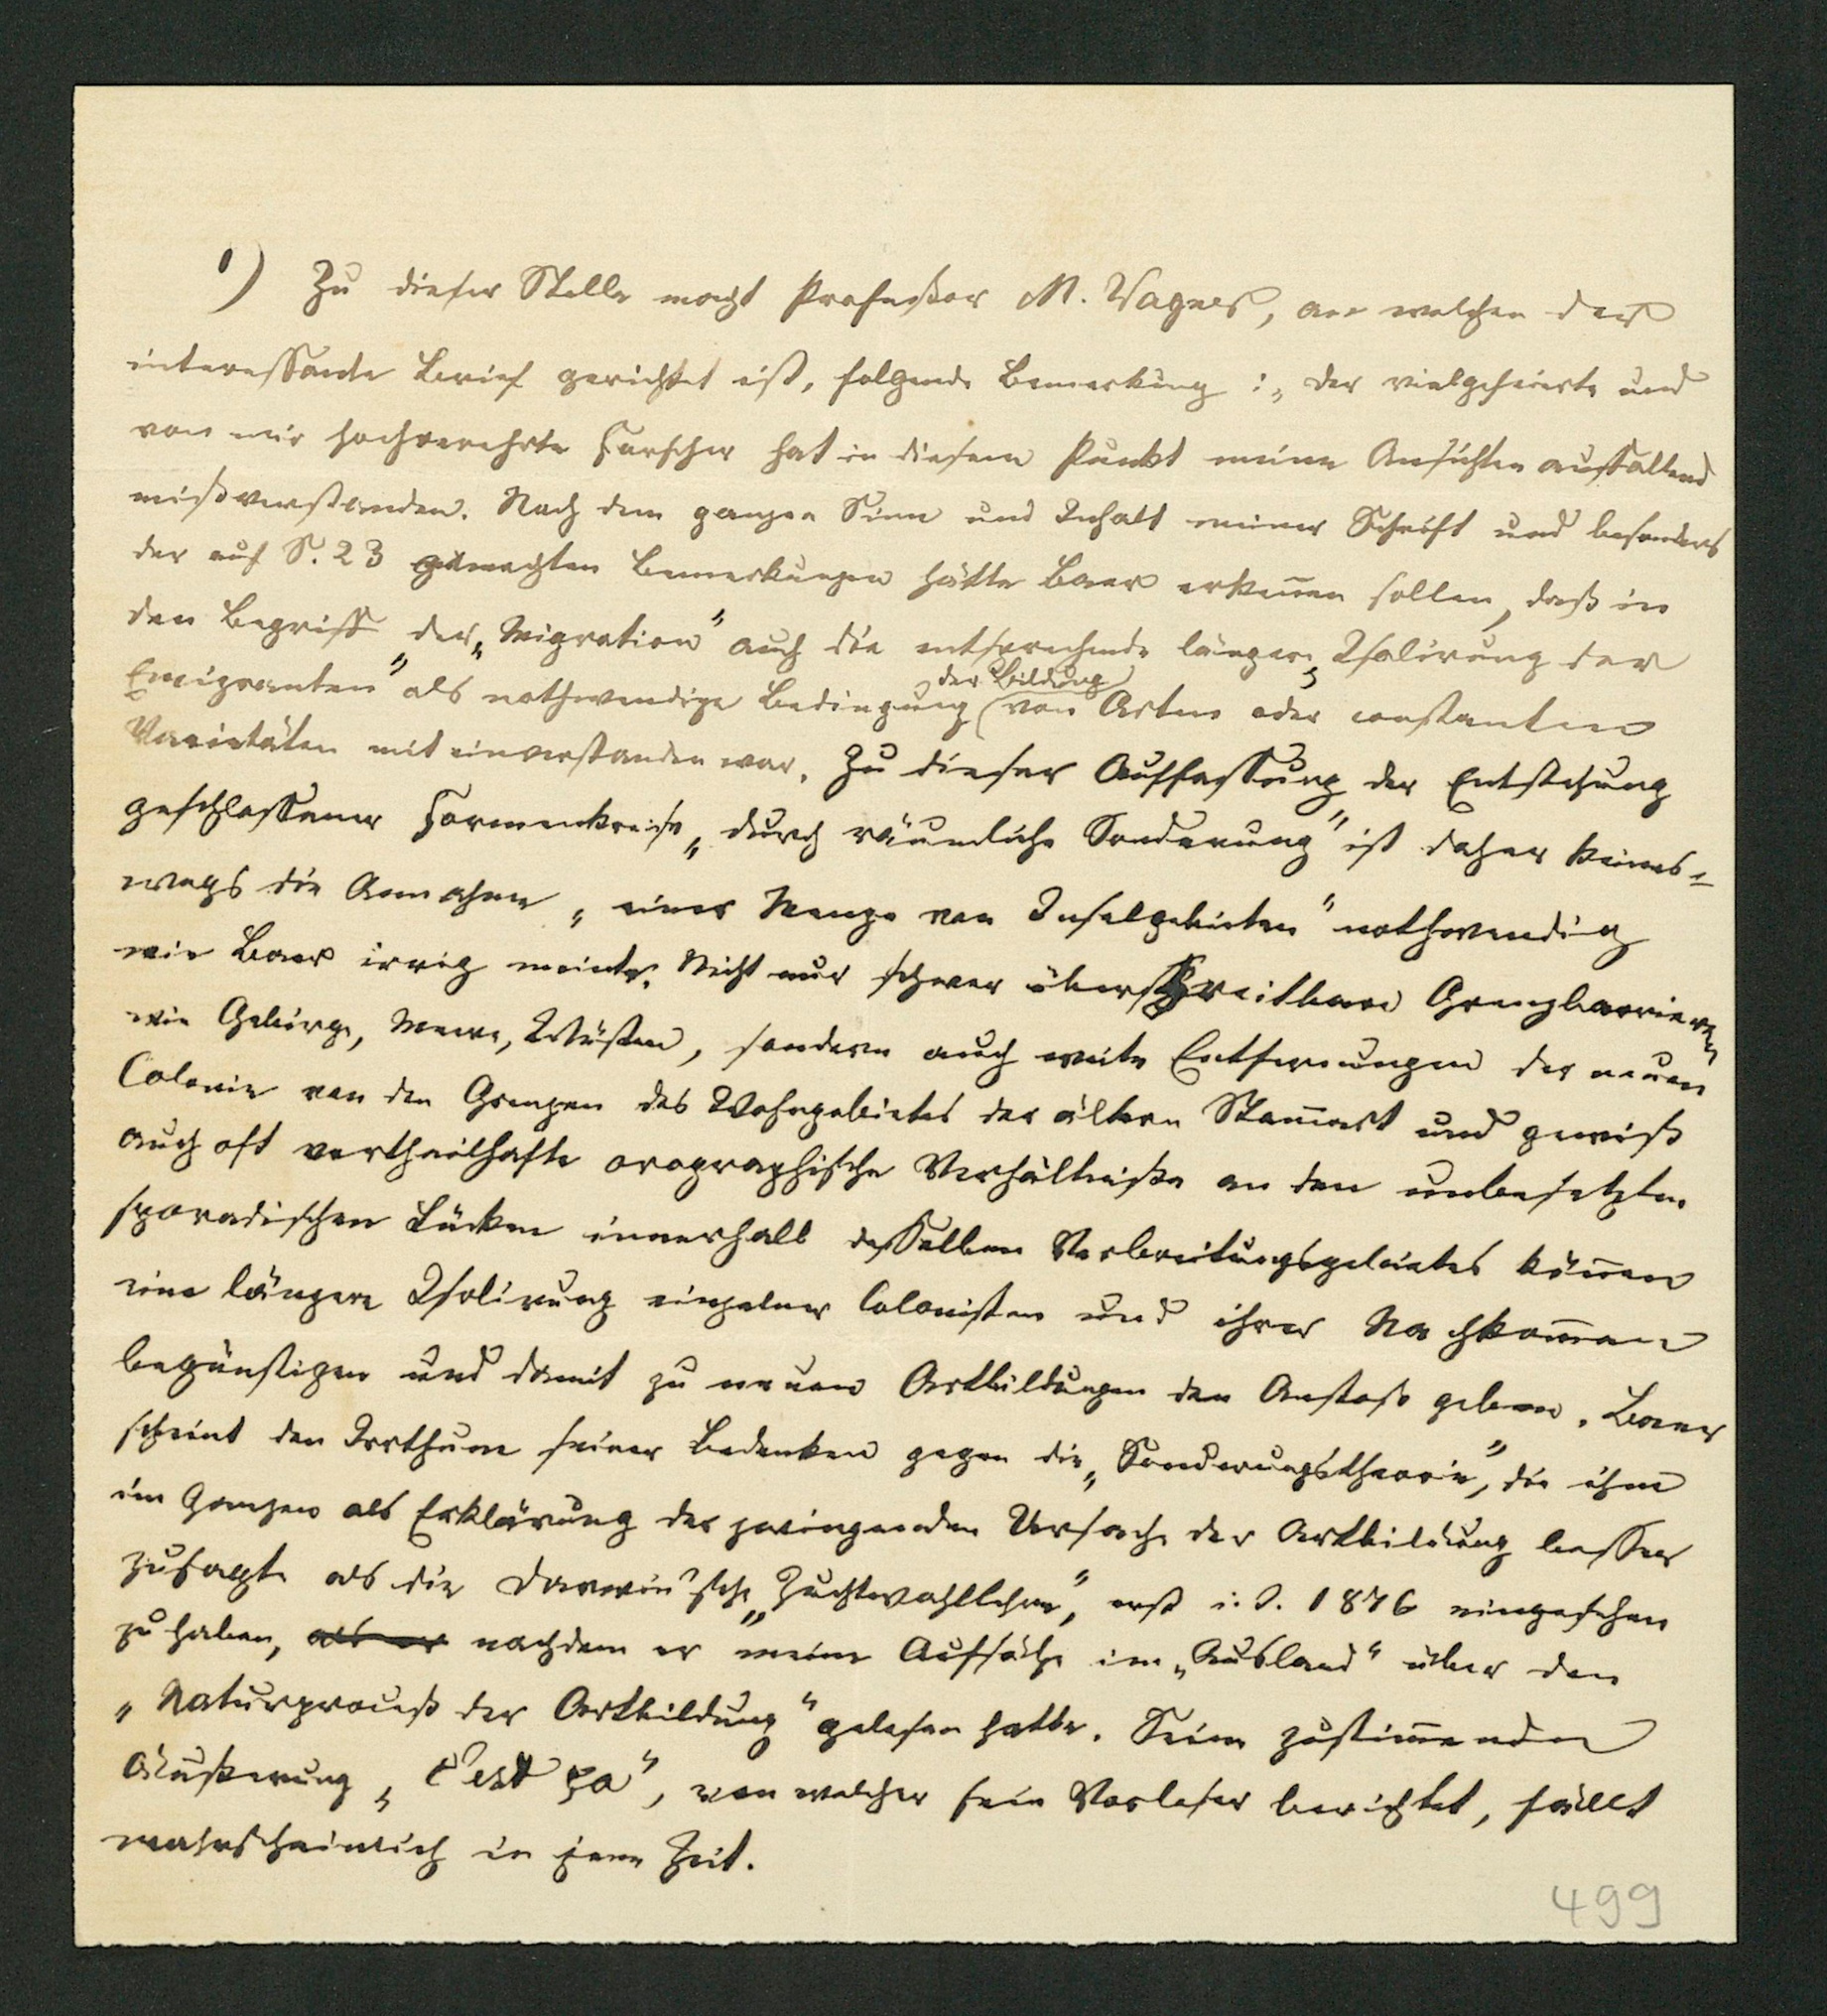 1) Zu dieser Stelle macht Professor M. Wagner, an welchen der
interessante Brief gerichtet ist, folgende Bemerkung: „Der vielgefeierte und
von mir hochverehrte Forscher hat in diesem Punkt meine Ansichten auffallend
mißverstanden. Nach dem ganzen Sinn und Inhalt meiner Schrift und besonders
der auf S. 23 gemachten Bemerkungen hätte Baer erkennen sollen, daß in
den Begriff der „Migration“ auch die entsprechende längere „Isolirung der
Emigranten“ als nothwendige Bedingung (der Bildung) von Arten oder constanten
Varietäten mit einverstanden war. Zu dieser Auffassung der Entstehung
geschlossener Formenkreise „durch räumliche Sonderung“ ist daher keines-
wegs die Annahme „einer Menge von Inselgebieten“ nothwendig
wie Baer irrig meinte. Nicht nur schwer überschreitbare Grenzbarrieren
wie Gebirge, Meere, Wüsten, sondern auch weite Entfernungen der neuen
Colonie von den Grenzen des Wohngebietes der ältern Stammart und gewiß
auch oft vortheilhafte orographische Verhältniße an den unbesetzten
sporadischen Lücken innerhalb desselben Verbreitungsgebietes können
eine längere Isolirung einzelner Colonisten und ihrer Nachkommen
begünstigen und damit zu neuen Artbildungen den Anstoß geben. Baer
scheint den Irrthum seiner Bedenken gegen die „Sonderungstheorie“, die ihm
im Ganzen als Erklärung der zwingenden Ursache der Artbildung besser
zusagte als die Darwin'sche „Zuchtwahllehre“, erst i. J. 1876 eingesehen
zu haben, als er nachdem er meine Aufsätze im „Ausland“ über den
„Naturproceß der Artbildung“ gelesen hatte. Seine zustimmende
Äußerung „C'est ça“, von welcher sein Vorleser berichtet, fällt
wahrscheinlich in jene Zeit.
499